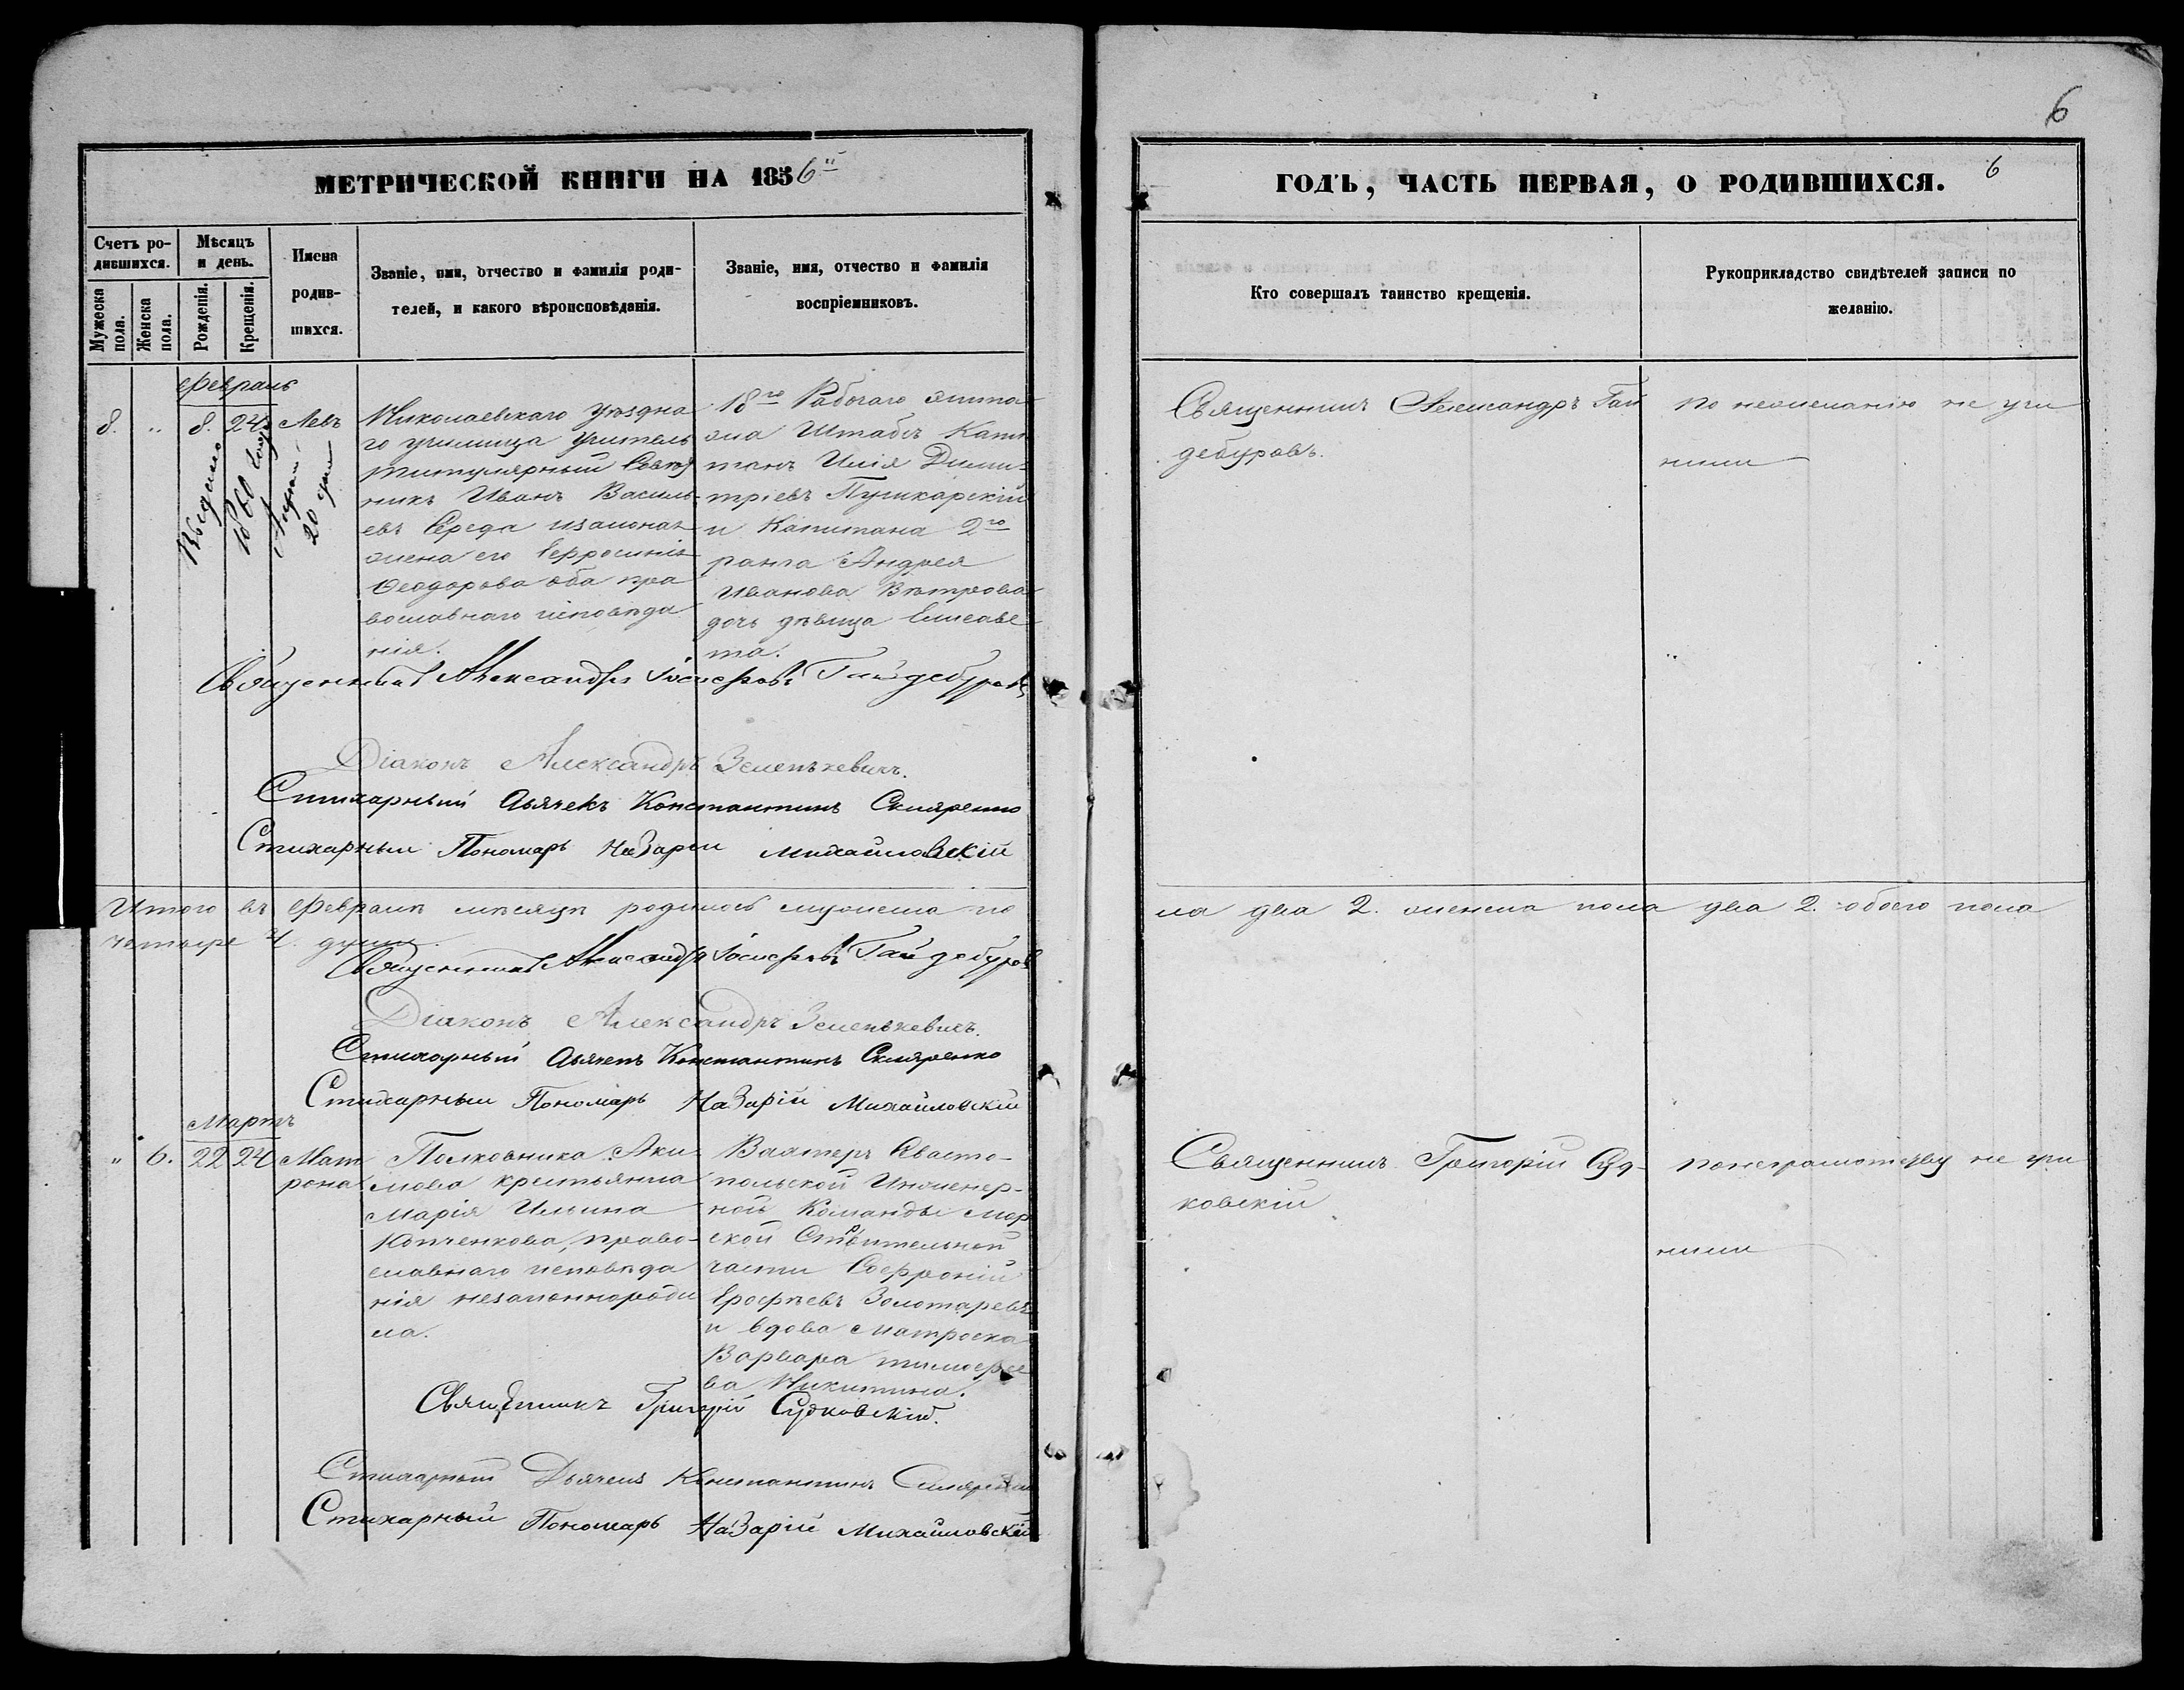 6
МЕТРИЧЕСКОЙ КНИГИ НА 1856й
ГОДЪ, ЧАСТЬ ПЕРВАЯ, О РОДИВШИХСЯ. 6
Счетъ ро-
дившихся.
Мѣсяцъ
и день.
Мужеска
пола.
Женска
пола.
Рожденія.
Крещенія.
Имена
родив-
шихся.
Званіе, имя, отчество и фамилія роди-
телей, и какого вѣроисповѣданія.
Званіе, имя, отчество и фамилія
воспріемниковъ.
Кто совершалъ таинство крещенія.
Рукоприкладство свидѣтелей записи по
желанію.
Февраль
8. „ 8. 24 Левъ
Выдано
1860 года
20 дня
Николаевскаго уѣздна
го училища учитель
титулярный Совѣт
никъ Иванъ Василь-
евъ Середа изаконая
жена его Ефросинія
Феодорова оба пра
вославнаго исповѣда
нія.
18го Рабочаго экипа
жа Штабсъ Капи
танъ Илія Дими-
тріевъ Пушкарскій
и Капитана 2го
ранга Андрея
Иванова Вѣтрова
дочь дѣвица Елисаве
та.
Священникъ Александръ Гай
дебуровъ.
по нежеланію не учи
нили
Священникъ Александръ Іосифовъ Гайдебуровъ
Діаконъ Александръ Зеленкевичъ.
Стихарный Дьячекъ Константинъ Скляренко
Стихарный Пономарь Назарій Михайловскій
Итого въ Февралѣ мѣсяцѣ родилось мужеска по
ла два 2. женска пола два 2. обоего пола
четыре 4. души.
Священникъ Александръ Іосифовъ Гайдебуровъ
Діаконъ Александръ Зеленкевичъ.
Стихарный Дьячекъ Константинъ Скляренко
Стихарный Пономарь Назарій Михайловскій
Мартъ
„ 6. 22 24 Мат
рона
Полковника Аки-
мова крестьянка
Марія Ильина
Копченкова, право-
славнаго исповѣда
нія незаконнороди
ла.
Вахтеръ Севасто-
польской Инженер-
ной Команды мор
ской Строительной
части Софроній
Ерофѣевъ Золотаревъ
и вдова матроска
Варвара тимофее
ва Никитина.
Священникъ Григорій Суд-
ковскій
понеграмотству не учи
нили
Священникъ Григорій Судковскій.
Стихарный Дьячекъ Константинъ Скляренко
Стихарный Пономарь Назарій Михайловскій